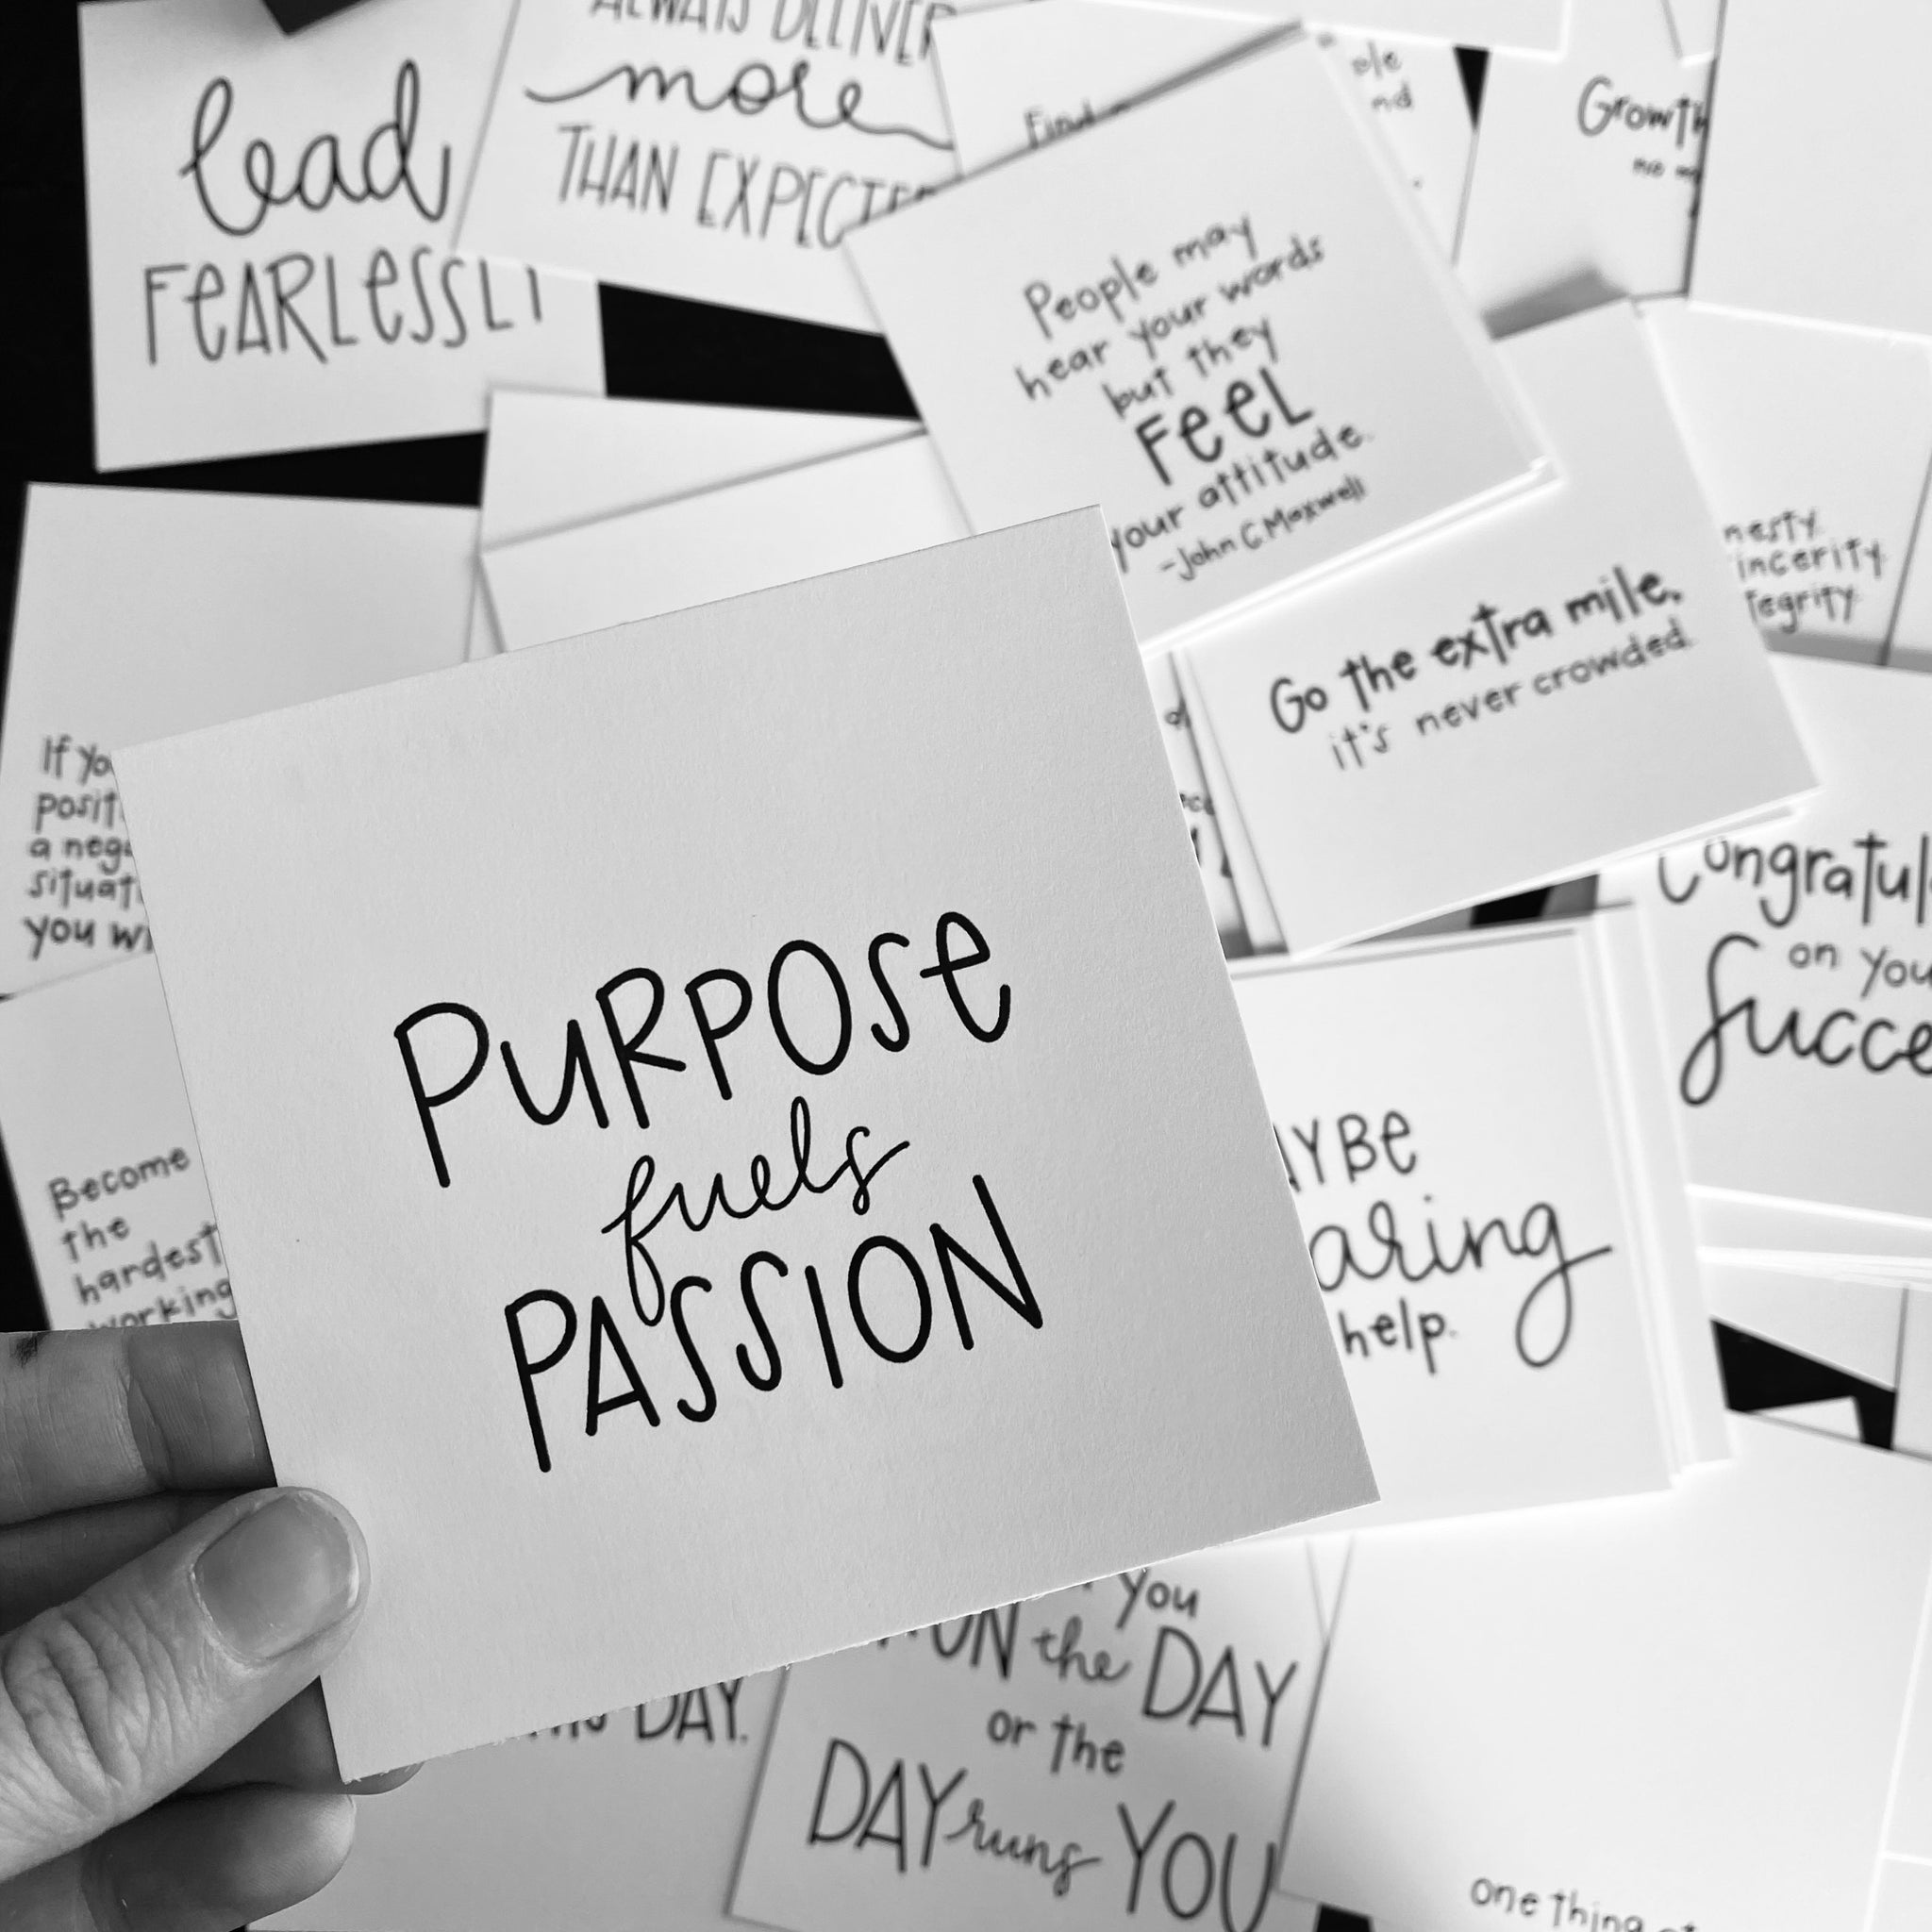 lead
FEARLESSLY
ALWAYS DELIVER
more
THAN EXPECTE
Find
ple
nd
Growth
no m
People may
hear your words
but they
FEEL
your attitude.
-John C Maxwell
nesty.
incerity.
tegrity.
Go the extra mile,
it's never crowded.
If yo
posit
a nega
situati
you wi
Congratul
on you
Succe
PURPOSE
fuels
PASSION
AYBE
aring
help.
Become
the
hardest
working
you
ON the DAY
or the
DAY runs YOU
DAY.
one thing